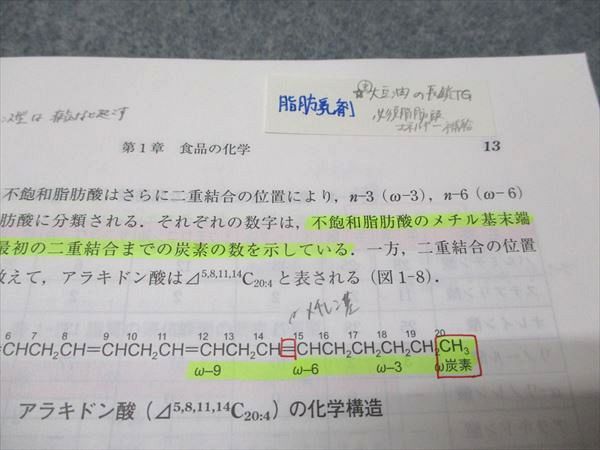 脂肪乳剤
大豆油の長鎖TG
必須脂肪酸
エネルギー補給
第1章 食品の化学
13
不飽和脂肪酸はさらに二重結合の位置により，n-3（ω-3），n-6（ω-6）
肪酸に分類される．それぞれの数字は，不飽和脂肪酸のメチル基末端
最初の二重結合までの炭素の数を示している．一方，二重結合の位置
数えて，アラキドン酸はΔ5,8,11,14C20:4と表される（図1-8）．
メチレン基
6 7 8 9 10 11 12 13 14 15 16 17 18 19 20
CHCH2CH=CHCH2CH=CHCH2CH=CHCH2CH2CH2CH2CH3
ω-9 ω-6 ω-3 ω炭素
アラキドン酸（Δ5,8,11,14C20:4）の化学構造